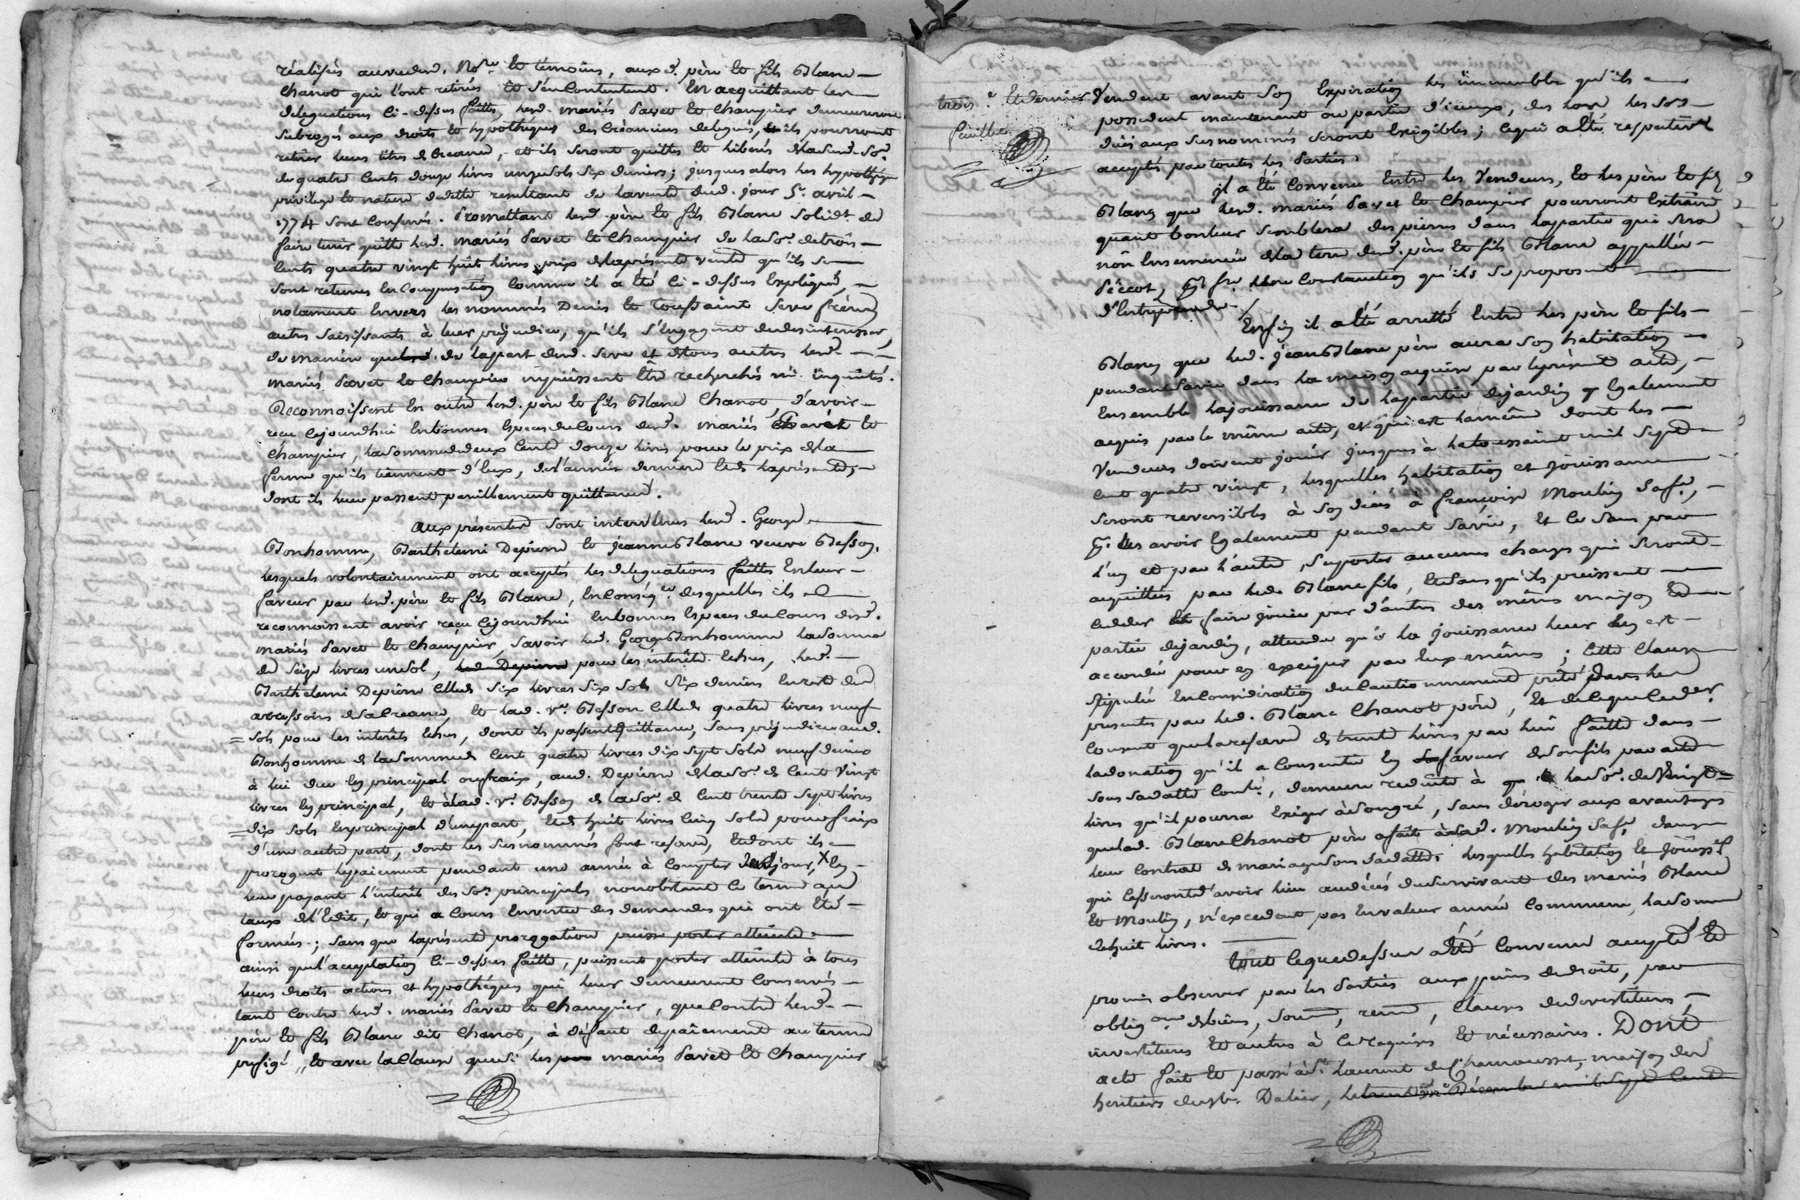 réalisés au vu desd. No.re et temoins, auxd. père et fils Blanc
Chanot qui l'ont retirés et s'en Contentent. En acquittant les
delegations Ci-dessus faittes, lesd. mariés Pavet et Champier demeureront
Subrogés aux droits et hypothèques des Créanciers delegués, et ils pourront
retirer leurs titres de Creance, et ils seront quittes et liberés de lad. So.e
de quatre Cents douze livres un sols Six deniers; jusques alors les hypothèque
privilege et nature de dette resultant de la vente dud. jour 5.e avril
1774 sont Conservés. Promettant lesd. père et fils Blanc Solidt. de
faire tenir quitte lesd. mariés Pavet et Champier de la So.e de trois
Cents quatre vingt huit livres prix de la presente vente qu'ils se
sont retenus en Compensation Comme il a été Ci-dessus Expliqué,
notament Envers les nommés Denis et Toussaint Serve frères
autres saisissants à leur préjudice, qu'ils s'engagent de desinteresser,
de manière que de la part desd. Serve et de tous autres lesd.
mariés Pavet et Champier ne puissent être recherchés ni inquiétés.
Reconnoissent en outre lesd. père et fils Blanc Chanot, d'avoir
reçu Cejourdhui En bonnes Especes de Cours desd. mariés Pavet et
Champier, la Somme de deux Cents douze livres pour le prix de la
ferme qu'ils tiennent d'Eux, de l'année derniere et de la presente,
dont ils leur passent pareillement quittance.
Aux présentes sont intervenus lesd. George
Bonhomme, Barthelemi Depierre et Jeanne Blanc veuve Besson,
lesquels volontairement ont accepté les delegations faittes En leur
faveur par lesd. père et fils Blanc, En Conség.ce desquelles ils
reconnoissent avoir reçu Cejourdhui En bonnes Especes de Cours desd.
mariés Pavet et Champier, savoir led. George Bonhomme la Somme
de Seize livres un sol, led. Depierre pour les intérêts Echus, led.
Barthelemi Depierre Celle de Six livres Six Sols Six deniers
accessoires de sa Creance, et lad. V.e Besson Celle de quatre livres neuf
Sols pour les intérêts Echus, dont ils passent Quittance, sans préjudice aud.
Bonhomme de la Somme de Cent quatre livres dix sept Sols neuf deniers
à lui due en principal ou fraix, aud. Depierre de la So.e de Cent vingt
livres en principal, et à lad. V.e Besson de la So.e de Cent trente Sept livres
dix Sols En principal d'une part, Et de huit livres Cinq Sols pour fraix
d'une autre part, dont les Susnommés font reserve, Et dont ils
prorogent le paiement pendant une année à Compter de ce jour, X En
leur payant l'intérêt des So.es principales nonobstant le terme au
taux de l'Edit, et qui a Cours En vertu des demandes qui ont Eté
formées; sans que la présente prorogation puisse porter atteinte
ainsi que l'acceptation Ci-dessus faitte, puissent porter atteinte à tous
leurs droits actions et hypothéques qui leur demeurent Conservés
tant Contre lesd. mariés Pavet et Champier, que Contre lesd.
père et fils Blanc dit Chanot, à défaut de paiement au terme
prefigé, Et avec la Clause que si les mariés Pavet et Champier
trois.e Et dernière
feuille
Vendent avant son Expiration les immeubles qu'ils
possedent maintenant ou partie d'iceux, des lors les So.es
dües aux Susnommés seront Exigibles; Ce qui a Eté respectiv.t
accepté par toutes les Parties.
Il a Eté Convenu Entre les Vendeurs, et les père et fils
Blanc que lesd. mariés Pavet et Champier pourront Extraire
quant bon leur Semblera des pierres dans la partie qui sera
non Ensemencée de la terre desd. père et fils Blanc appellée
d'Ecot, Construction qu'ils se proposent
d'Entreprendre.
Enfin il a été arretté Entre les père et fils
Blanc que led. Jean Blanc père aura son habitation
pendant sa vie dans la maison acquise par le présent acte,
Ensemble la jouissance de la partie de jardin Egalement
acquis par le même acte, et qui est la même dont les
Vendeurs doivent jouir jusques à la toussaint mil Sept
Cent quatre vingt, lesquelles habitation et jouissance
seront reversibles à son décès à françoise Moulin sa fe.,
les avoir Egalement pendant sa vie, Et ce sans par
l'un et par l'autre Suporter aucunes charges qui Seront
acquittées par led. Blanc fils, Et sans qu'ils puissent
Ceder et faire jouir par d'autres des mêmes maison Et
partie de jardin, attendu que la jouissance leur En est
accordée pour En exciper par Eux mêmes; Cette Clause
Stipulée En Considération du Cautionnement prêté dans les
presentes par led. Blanc Chanot père, Et de ce que led.
Consent que la reserve de trente livres par lui faitte dans
la donation qu'il a Consentie En faveur de son fils par acte
sous sa datte Cont.é, demeure reduite à la So.e de Vingt
livres qu'il pourra Exiger à son gré, sans déroger aux avantages
que lad. Blanc Chanot père a fait à lad. Moulin sa fe. dans
leur Contrat de mariage sous sa datte; lesquelles habitation Et jouiss.e
qui Cesseront d'avoir lieu au décés du survivant des mariés Blanc
Et Moulin, n'excedent pas En valeur année Commune, la Somme
de huit livres.
tout Ce que dessus a Eté Convenu accepté Et
promis observer par les Parties aux peines de droit, par
oblig.on de biens, Soum., renon., Clauses de devestiture,
investiture Et autres à Ce requises Et nécessaires. Dont
acte fait Et passé à S.t Laurent de Chamousset, maison des
heritiers du S.r Dalier, le Décembre mil Sept Cent